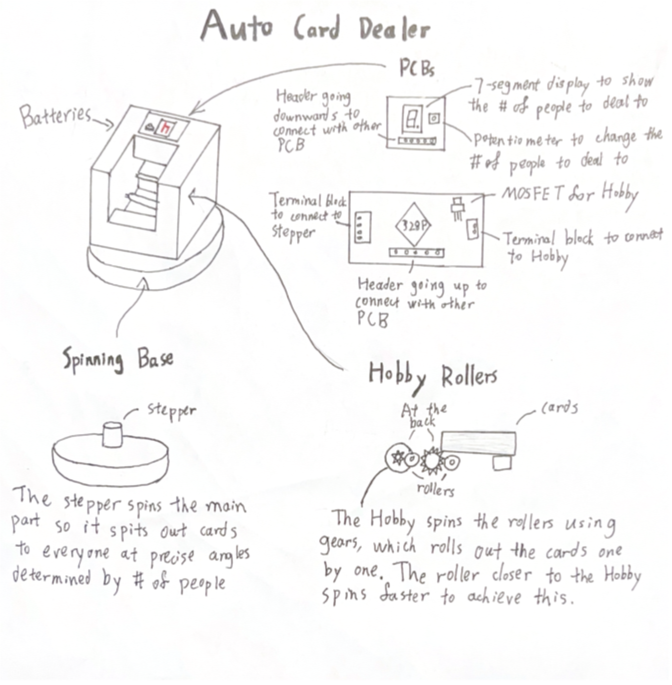 Auto Card Dealer
PCBs
Batteries
Header going
downwards to
connect with other
PCB
8.
7-segment display to show
the # of people to deal to
Potentiometer to change the
# of people to deal to
Terminal block
to connect to
stepper
328P
MOSFET for Hobby
Terminal block to connect
to Hobby
Header going up to
connect with other
PCB
Spinning Base
stepper
The stepper spins the main
part so it spits out cards
to everyone at precise angles
determined by # of people
Hobby Rollers
At the
back
cards
rollers
The Hobby spins the rollers using
gears, which rolls out the cards one
by one. The roller closer to the Hobby
spins faster to achieve this.